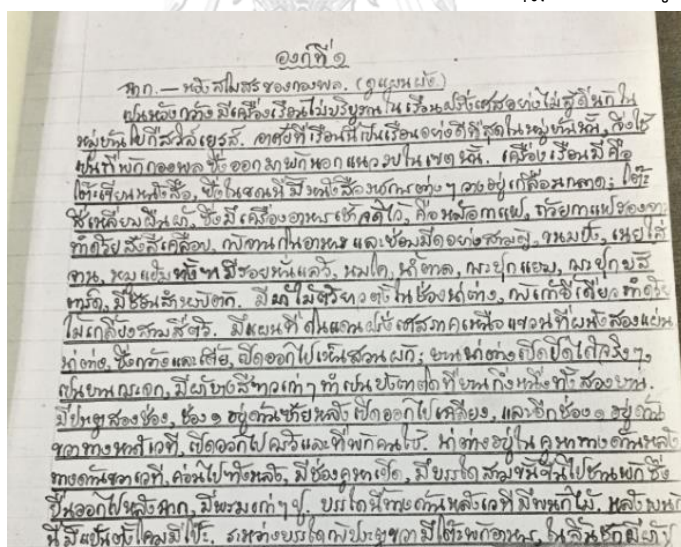 องก์ที่ ๑
ฉาก. — หลังสโมสรของกองพล. (ดูแผนผัง.)
เปนหลังกว้าง มีเครื่องเรือนไม่บริบูรณ์ ในเรือนฝรั่งเศสอย่างไม่สู้ดีนัก ใน
หมู่บ้าน อาศัยที่เรือนนี้เปนเรือนอย่างดีที่สุดในหมู่บ้านนั้น, จึงใช้
เปนที่พักกองพล ซึ่งออกมาพักนอกแนวรบในเขตนั้น. เครื่องเรือนมีคือ
โต๊ะเขียนหนังสือ, ซึ่งในขณะนี้มีหนังสือราชการต่าง ๆ วางอยู่เกลื่อนกลาด; โต๊ะ
สี่เหลี่ยมผืนผ้า, ซึ่งมีเครื่องอาหารเช้าจัดไว้, คือหม้อกาแฟ, ถ้วยกาแฟ
ทำด้วยสังกะสีเคลือบ, จานกินอาหาร และช้อนมีดอย่างสามัญ, ขนมปัง, เนยใส่
จาน, หมูแฮม มีรอยหั่นแล้ว, นมโค, น้ำตาล, กระปุกแยม, กระปุกมัส
ตาร์ด, มีช้อนสำหรับตัก. มีม้าไม้ตัวยาวตั้งในช่องน่าต่าง, กับเก้าอี้เดี่ยวทำด้วย
ไม้เกลี้ยงสามสี่ตัว. มีแผนที่ดินแดนฝรั่งเศสภาคเหนือแขวนที่ผนังสองแผ่น
น่าต่าง, ซึ่งกว้างและเตี้ย, เปิดออกไปเห็นสวนผัก; บานน่าต่างเปิดปิดได้จริง ๆ,
เปนบานกระจก, มีผ้าบางสีขาวเก่า ๆ ทำเปนบังตาติดที่บานกึ่งหนึ่งทั้งสองบาน.
มีประตูสองช่อง, ช่อง ๑ อยู่ด้านซ้ายหลัง เปิดออกไปเฉลียง, และอีกช่อง ๑ อยู่ด้าน
ขวาทางหน้าเวที, เปิดออกไปครัวและที่พักคนใช้. น่าต่างอยู่ใน คูหาทางด้านหลัง
ทางด้านขวาเวที, ค่อนไปทางหลัง, มีช่องคูหาเปิด, มีบรรไดสามขั้นขึ้นไปชานพัก ซึ่ง
ยื่นออกไปหลังฉาก, มีพรมเก่า ๆ ปู. บรรไดนี้ทางด้านหลังเวทีมีพนักไม้. หลังพนัก
นี้มีแป้นตั้งโคมมีโป๊ะ. ระหว่างบรรไดกับประตูขวา มีโต๊ะพักอาหาร, ในลิ้นชักมีผ้า